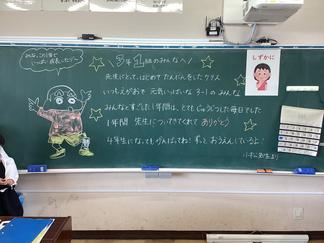 みんな、この1年で
いっぱい成長したゾ〜
3年1組のみんなへ
先生にとって、はじめてたんにんをしたクラス
いつもえがおで 元気いっぱいな 3-1のみんな
みんなとすごした1年間は、とてもじゅうじつした毎日でした
1年間 先生についてきてくれて ありがとう
4年生になっても がんばってね! ずっと おうえんしているよ!
先生より
しずかに